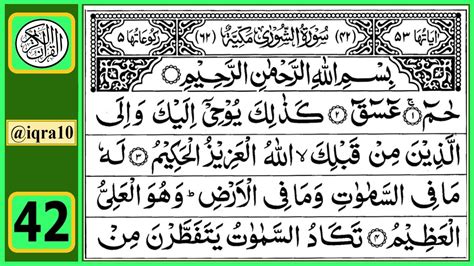 القرآن الكريم
@iqra10
42
اٰیَاتُهَا ٥٣ (٤٢) سُوْرَةُ الشُّوْرٰى مَكِّيَّةٌ (٦٢) رُكُوْعَاتُهَا ٥
بِسْمِ اللّٰهِ الرَّحْمٰنِ الرَّحِيْمِ
حٰمٓ ۚ﴿١﴾ عٓسٓقٓ ﴿٢﴾ كَذٰلِكَ يُوْحِيْٓ اِلَيْكَ وَاِلَى
الَّذِيْنَ مِنْ قَبْلِكَ ۙ اللّٰهُ الْعَزِيْزُ الْحَكِيْمُ ﴿٣﴾ لَهٗ
مَا فِى السَّمٰوٰتِ وَمَا فِى الْاَرْضِ ؕ وَهُوَ الْعَلِىُّ
الْعَظِيْمُ ﴿٤﴾ تَكَادُ السَّمٰوٰتُ يَتَفَطَّرْنَ مِنْ